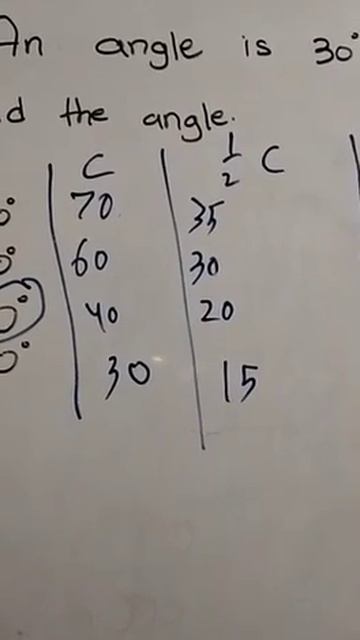 An angle is 30°
d the angle.
C 1/2 C
0° 70 35
0° 60 30
0° 40 20
0° 30 15